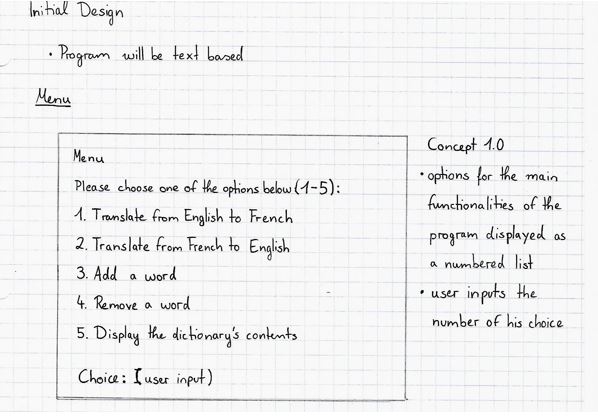 Initial Design
• Program will be text based
Menu
Menu
Please choose one of the options below (1-5):
1. Translate from English to French
2. Translate from French to English
3. Add a word
4. Remove a word
5. Display the dictionary's contents
Choice: [user input)
Concept 1.0
• options for the main
functionalities of the
program displayed as
a numbered list
• user inputs the
number of his choice